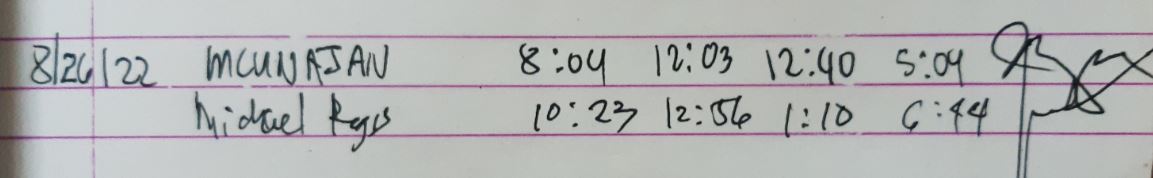 8/26/22 MCUNAJAN 8:04 12:03 12:40 5:04
Michael 10:23 12:56 1:10 6:44